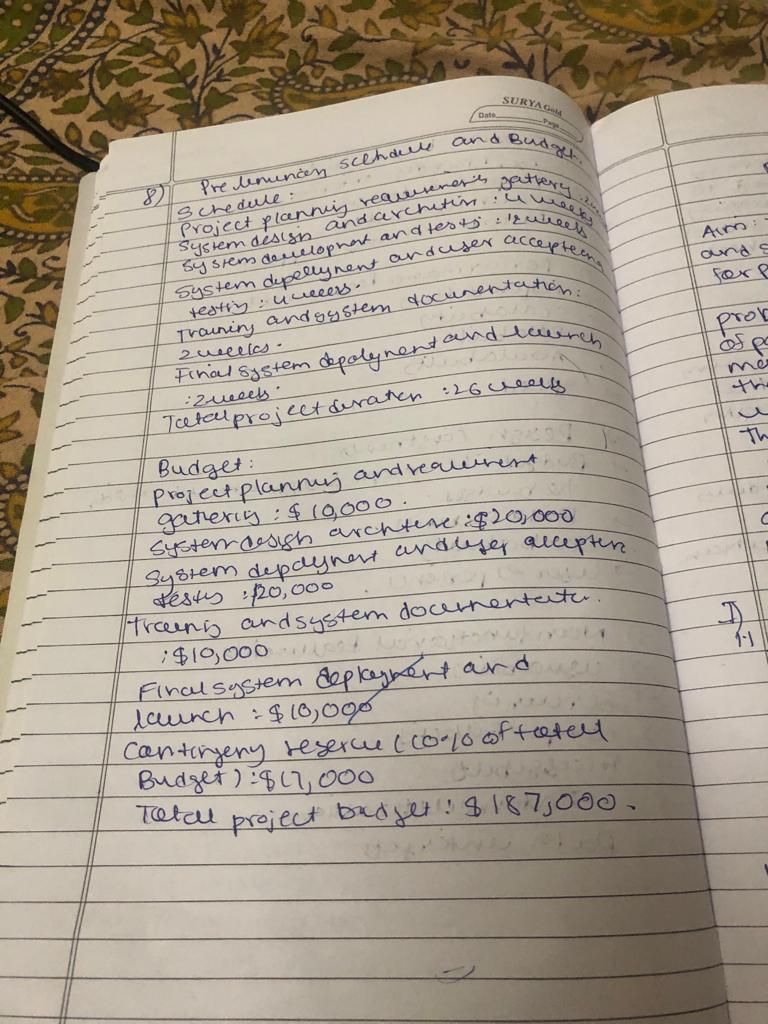 SURYA Gold
Date
Page
8) Preliminary schedule and Budget.
Schedule:
Project planning requirements gathery :
System design and architectur : 4 weeks
System development and tests : 12 weeks
System deployment and user acceptence
testing : 4 weeks.
Training and system documentation:
2 weeks.
Final system depolyment and launch
: 2 weeks.
Total project duration : 26 weeks
Budget:
project planning and requirement
gathering : $ 10,000.
System design architecture : $20,000
System deployment and user acceptence
tests : $20,000
Training and system documentation.
: $10,000
Final system deployment and
launch : $10,000
Contingency reserve (10% of total
Budget) : $17,000
Total project budget : $187,000.
Aim:
and s
for p
prob
of pa
Th
I)
1.1